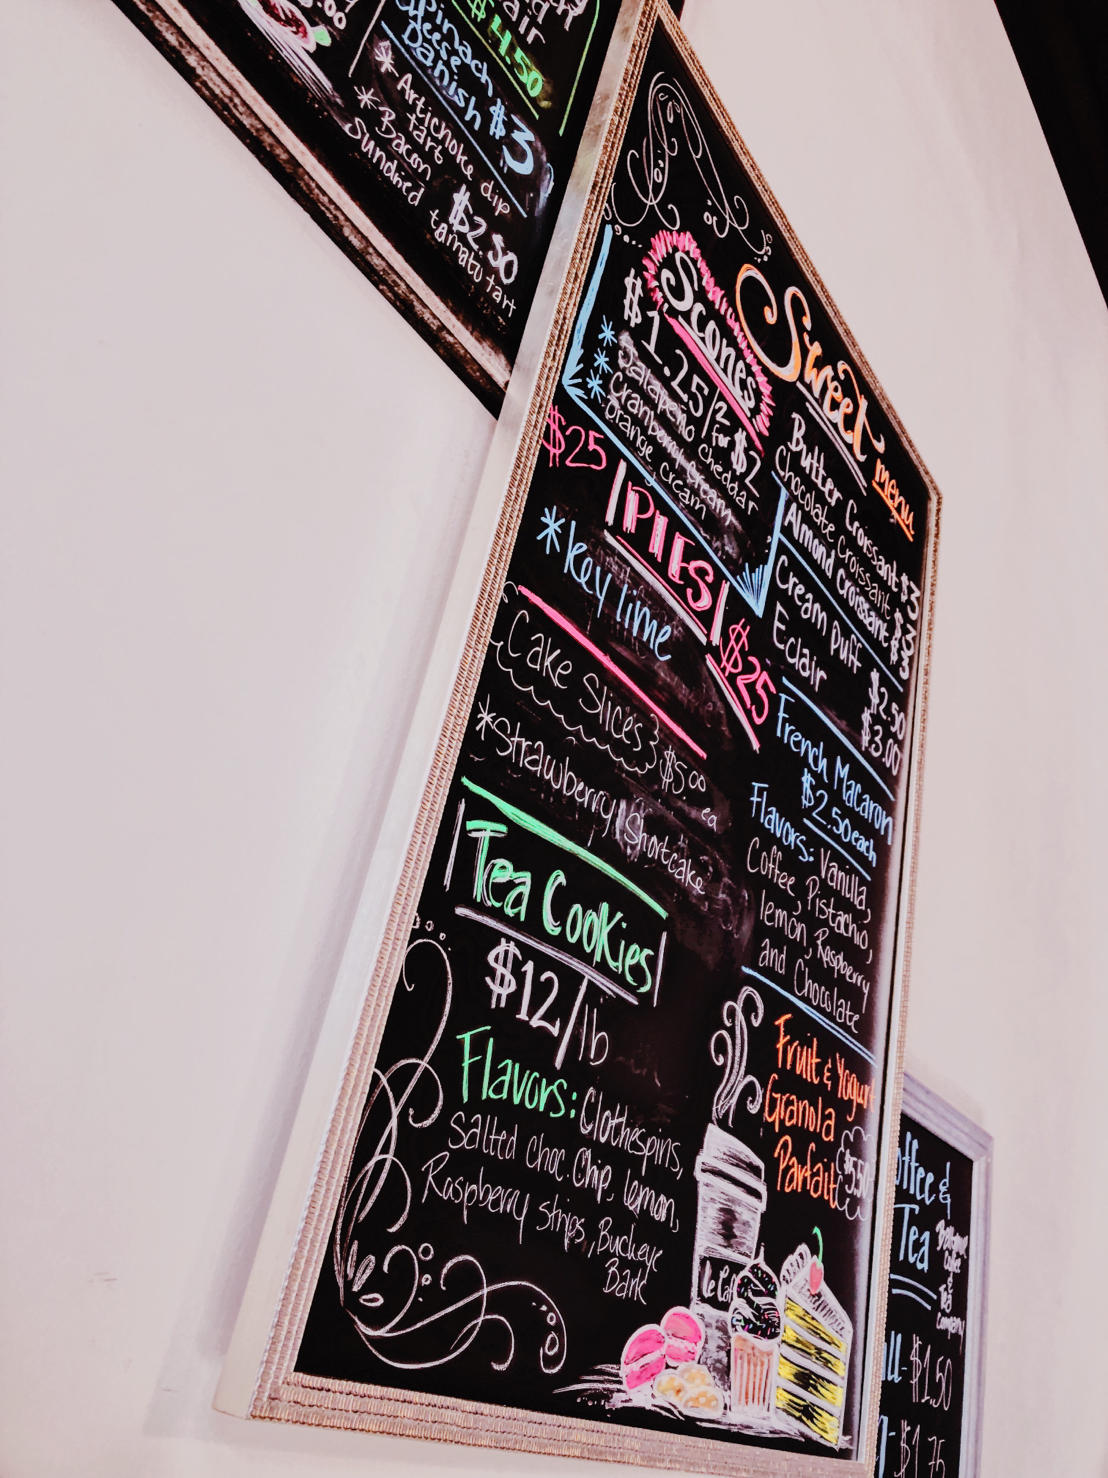 $4.50
Spinach
Cheese
Danish $3
* Artichoke dip
tart
* Bacon $2.50
Sundried tamato tart
Sweet
menu
Scones
$1.25/2 for $2
* Jalapeño cheddar
* Cranberry cream
* orange cream
$25
PIES
* key lime
$25
Cake Slices $5.00
ea
* Strawberry Shortcake
Tea Cookies
$12/lb
Flavors: Clothespins,
Salted Choc. Chip, lemon,
Raspberry strips, Buckeye
Bark
Butter Croissant $3
Chocolate croissant $3
Almond Croissant $3
Cream puff $2.50
Eclair $3.00
French Macaron
$2.50 each
Flavors: Vanilla,
Coffee, Pistachio,
lemon, Raspberry
and Chocolate
Fruit & Yogurt
Granola
Parfait $5.50
offee &
Tea
Company
$1.50
$1.75